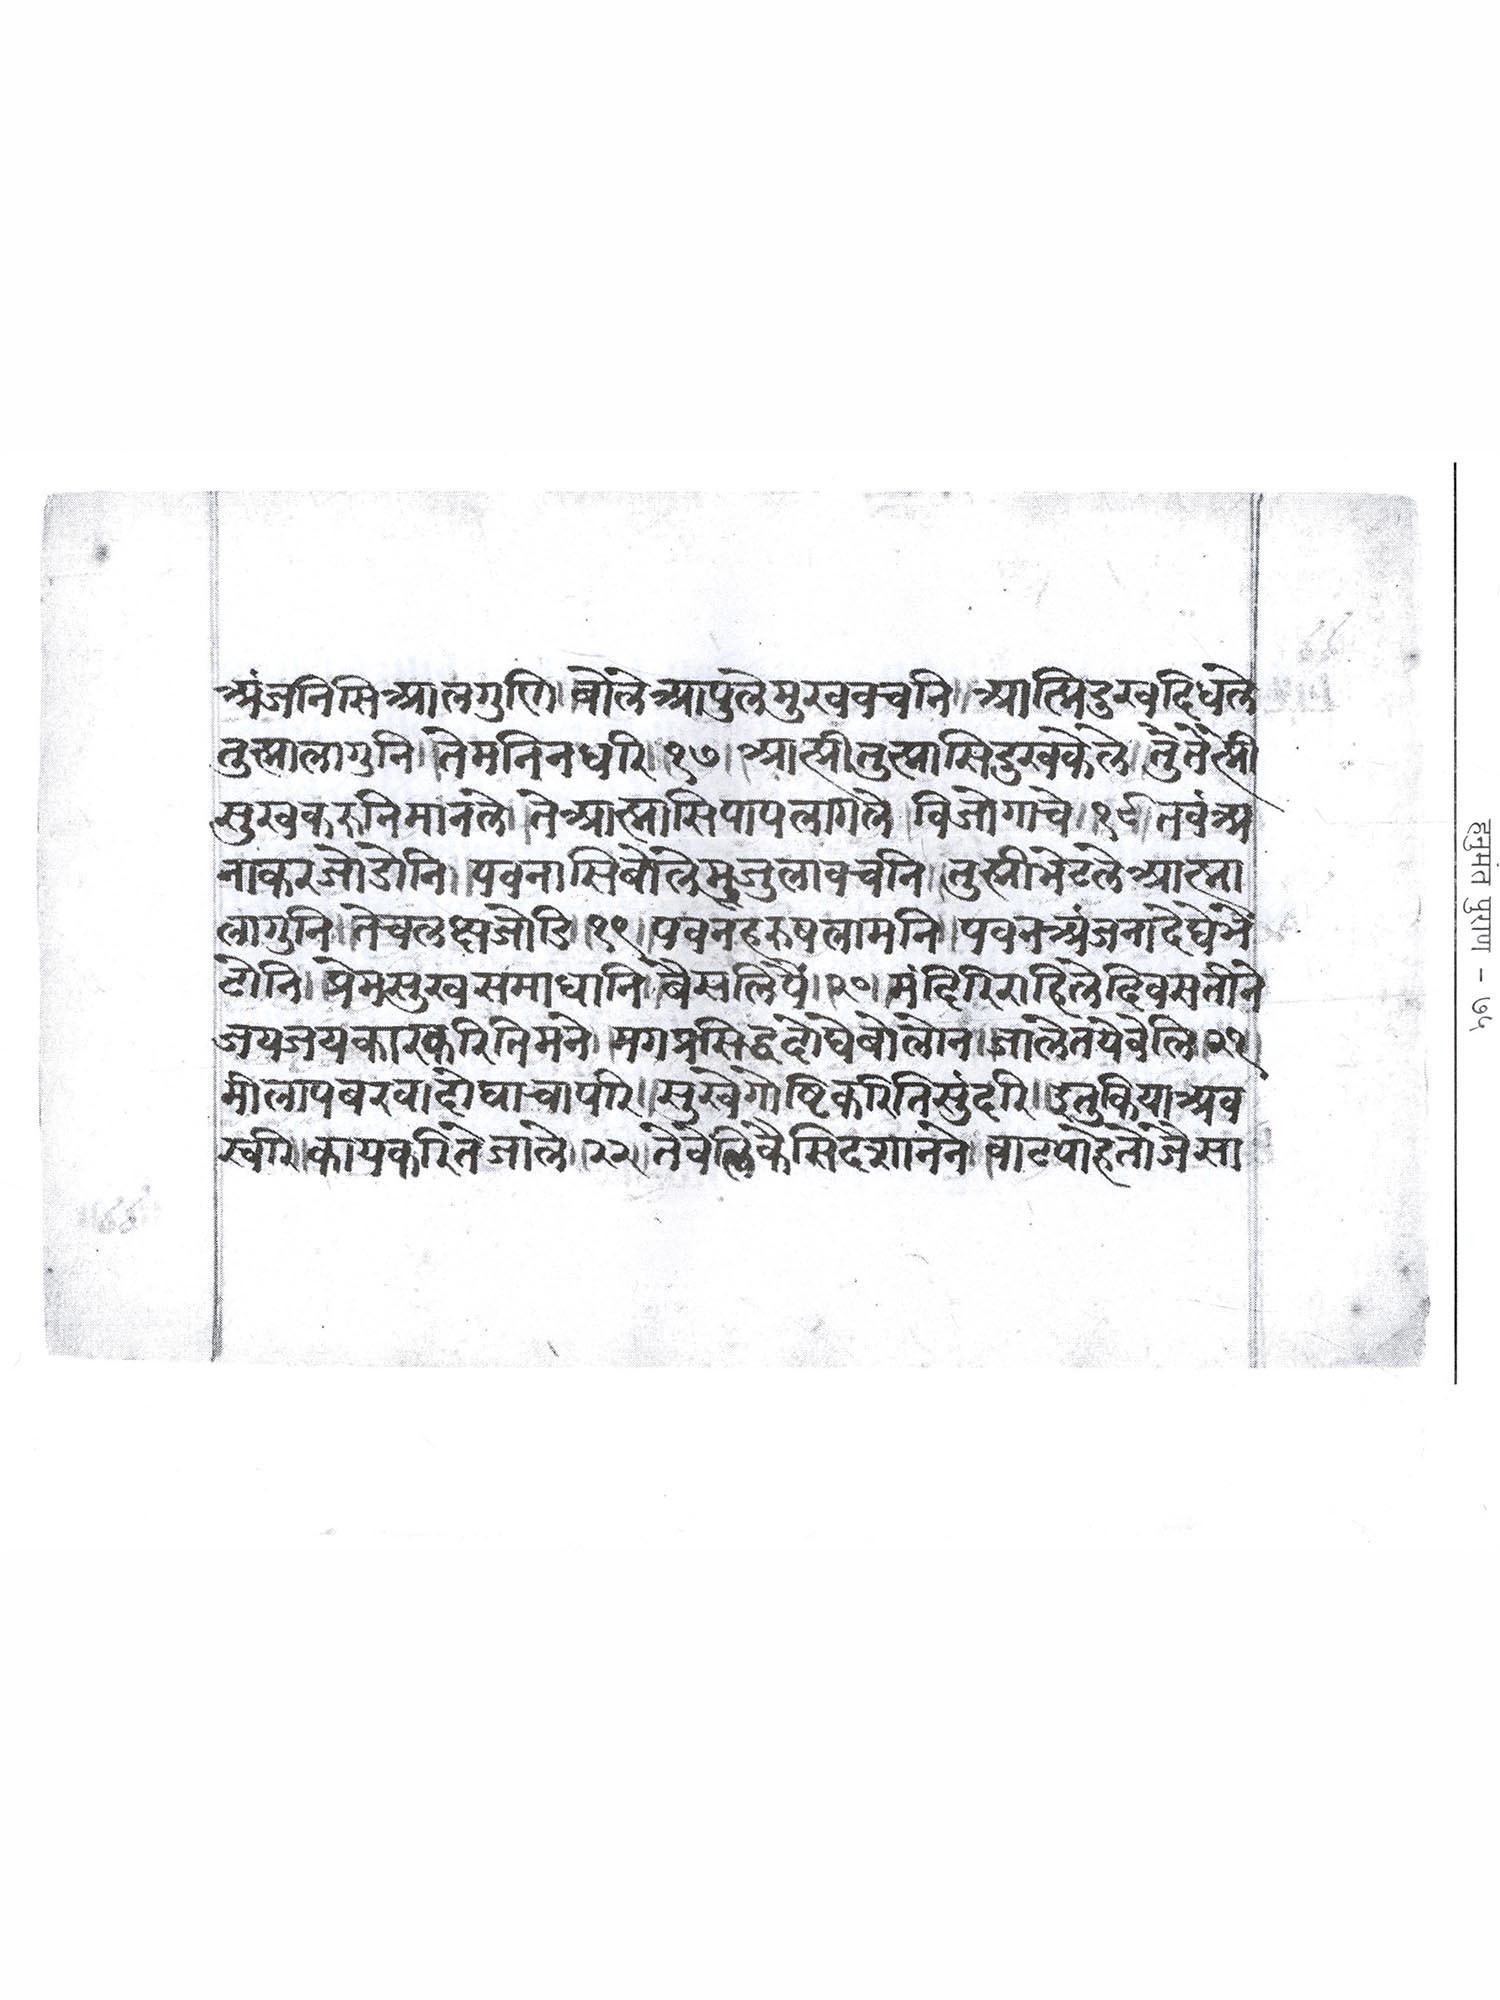 अंजनिसिआलगुनि। बोलेआपुलेमुखवचनि। आह्मिदुखदिधले
तुह्मालागुनि। तेमनिनधरि। १७। आह्मीतुह्मासिदुखकेले। तुंतेह्मी
सुखकरूनिमानले। तेआह्मासिपापलागले। विजोगाचे। १८। तवंअं
नाकरजोडोनि। पवनासिबोलेमुजुलावचनि। तुह्मीभेटलेआह्मा
लागुनि। तेचलक्षजोडि। १९। पवनहरुषलामनि। पवनअंजनादेघेभे
टोनि। प्रेमसुखसमाधानि। बैसलिपै। २०। मंदिरिराहिलेदिवसतीने
जयजयकारकरितिमने। मगप्रसिद्धदोघेबोलोन। जालेतयेवेलि। २१।
मीलापबरवादोघाचापरि। सुखेगोष्टिकरितिसुंदरि। इतुकियाअव
स्वरि। कायकरितेजाले। २२। तेवेलिकैसिदशानने। वाटपाहेतोजैसा
हनुमंत पुराण - ७५